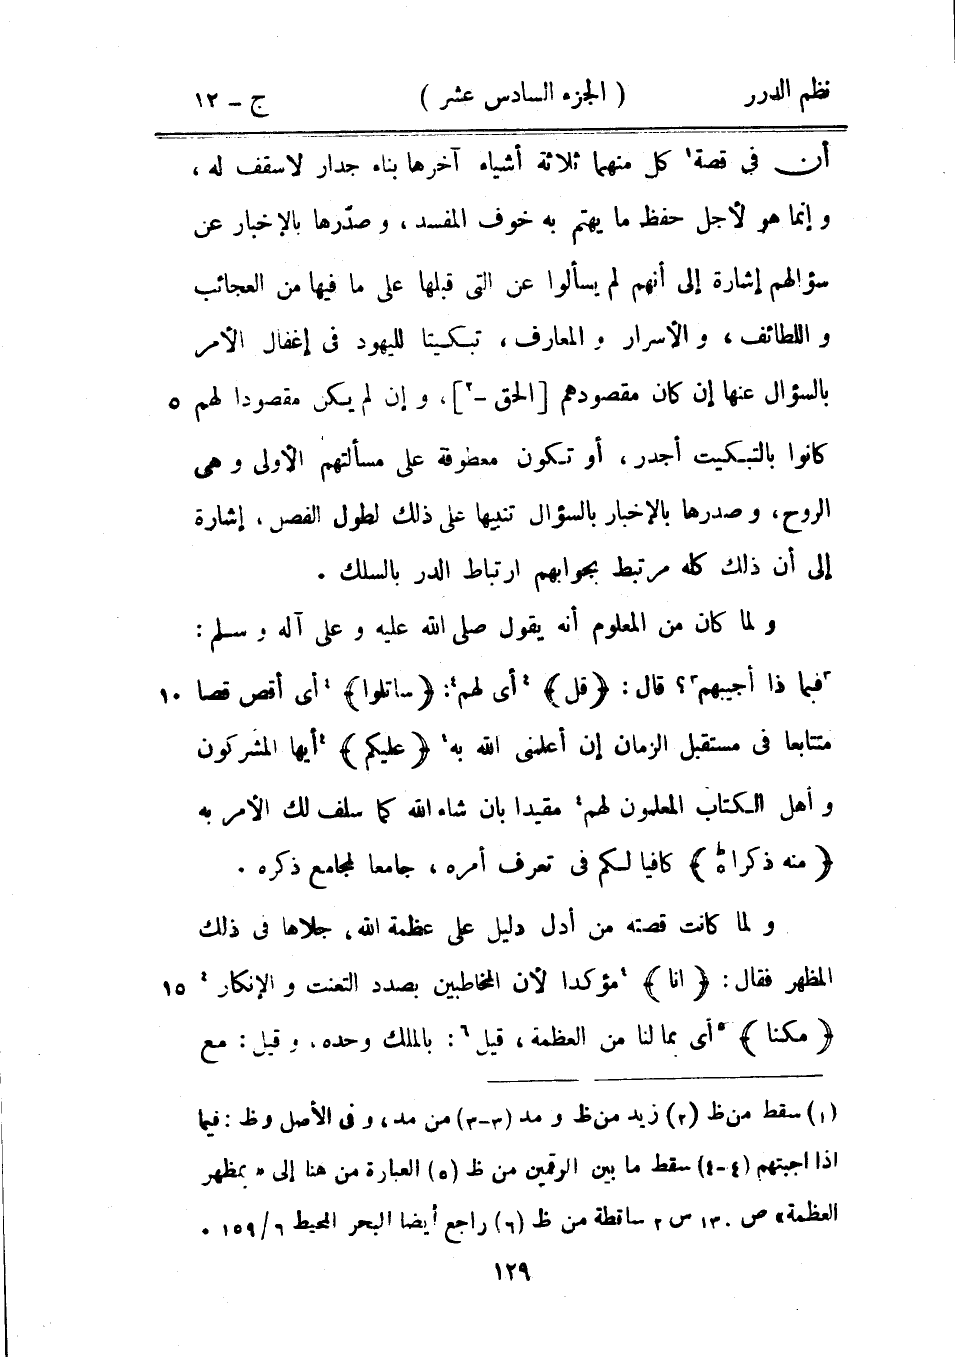 نظم الدرر ( الجزء السادس عشر ) ج - ١٢
أن في قصة١ كل منهما ثلاثة أشياء آخرها بناء جدار لاسقف له ،
و إنما هو لأجل حفظ ما يهتم به خوف المفسد ، و صدّرها بالإخبار عن
سؤالهم إشارة إلى أنهم لم يسألوا عن التي قبلها على ما فيها من العجائب
و اللطائف ، و الأسرار و المعارف ، تبكيتا لليهود في إغفال الأمر
بالسؤال عنها إن كان مقصودهم [الحق -٢] ، و إن لم يكن مقصودا لهم ٥
كانوا بالتبكيت أجدر ، أو تكون معطوفة على مسألتهم الأولى و هي
الروح ، و صدرها بالإخبار بالسؤال تنبيها على ذلك لطول الفصل ، إشارة
إلى أن ذلك كله مرتبط بجوابهم ارتباط الدر بالسلك .
و لما كان من المعلوم أنه يقول صلى الله عليه و على آله و سلم :
٣فبما ذا أجيبهم٣؟ قال : ﴿ قل ﴾ ٤أي لهم٤: ﴿ ساتلوا ﴾ ٤أي أقص قصا ١٠
متتابعا في مستقبل الزمان إن أعلمني الله به٤ ﴿ عليكم ﴾ ٤أيها المشركون
و أهل الكتاب المعلمون لهم٤ مقيدا بان شاء الله كما سلف لك الأمر به
﴿ منه ذكراط٥ ﴾ كافيا لكم في تعرف أمره ، جامعا لمجامع ذكره .
و لما كانت قصته من أدل دليل على عظمة الله ، جلاها في ذلك
المظهر فقال : ﴿ انا ﴾ ٤مؤكدا لأن المخاطبين بصدد التعنت و الإنكار٤ ١٥
﴿ مكنا ﴾ ٥أي بما لنا من العظمة ، قيل٦ : بالملك وحده . و قيل : مع
(١) سقط من ظ (٢) زيد من ظ و مد (٣-٣) من مد ، و في الأصل و ظ : فيما
اذا اجبتهم (٤-٤) سقط ما بين الرقمين من ظ (٥) العبارة من هنا إلى « بمظهر
العظمة » ص ١٣٠ س ٢ ساقطة من ظ (٦) راجع أيضا البحر المحيط ٦/ ١٥٩ .
١٢٩